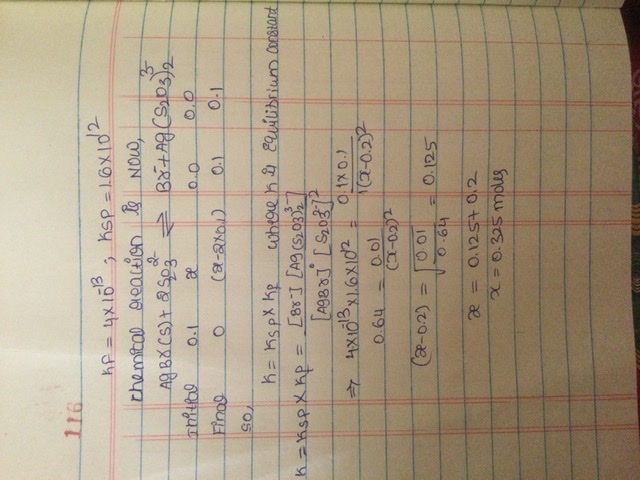 116
KF = 4×10^-13 ; KSP = 1.6×10^12
Chemical reaction is NOW,
AgBr(s) + 2S2O3^2- ⇌ Br^- + Ag(S2O3)2^3-
Initial 0.1 x 0.0 0.0
Final 0 (x-2×0.1) 0.1 0.1
SO,
K = KSP × KF where K is equilibrium constant
K = KSP × KF = [Br^-] [Ag(S2O3)2^3-] / [AgBr]° [S2O3^2-]^2
⇒ 4×10^-13 × 1.6×10^12 = 0.1×0.1 / 1(x-0.2)^2
0.64 = 0.01 / (x-0.2)^2
(x-0.2) = √(0.01 / 0.64) = 0.125
x = 0.125 + 0.2
x = 0.325 moles